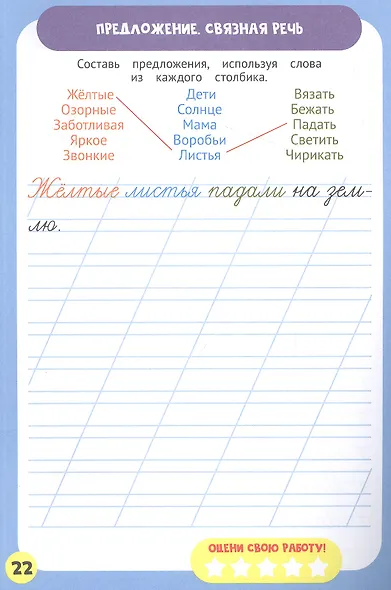 ПРЕДЛОЖЕНИЕ. СВЯЗНАЯ РЕЧЬ
Составь предложения, используя слова
из каждого столбика.
Жёлтые Дети Вязать
Озорные Солнце Бежать
Заботливая Мама Падать
Яркое Воробьи Светить
Звонкие Листья Чирикать
Жёлтые листья падали на зем-
лю.
ОЦЕНИ СВОЮ РАБОТУ!
22